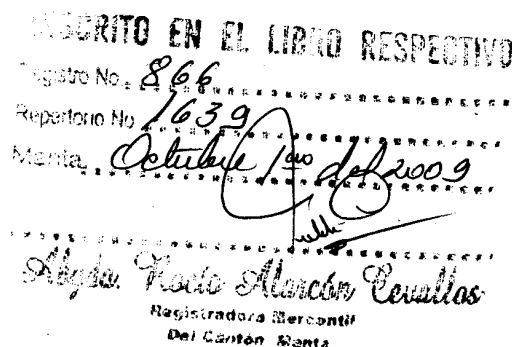 INSCRITO EN EL LIBRO RESPECTIVO
Registro No. 866
Repertorio No 1639
Manta, Octubre 1ero del 2009
Abgda. Rocío Alarcón Cevallos
Registradora Mercantil
Del Cantón Manta